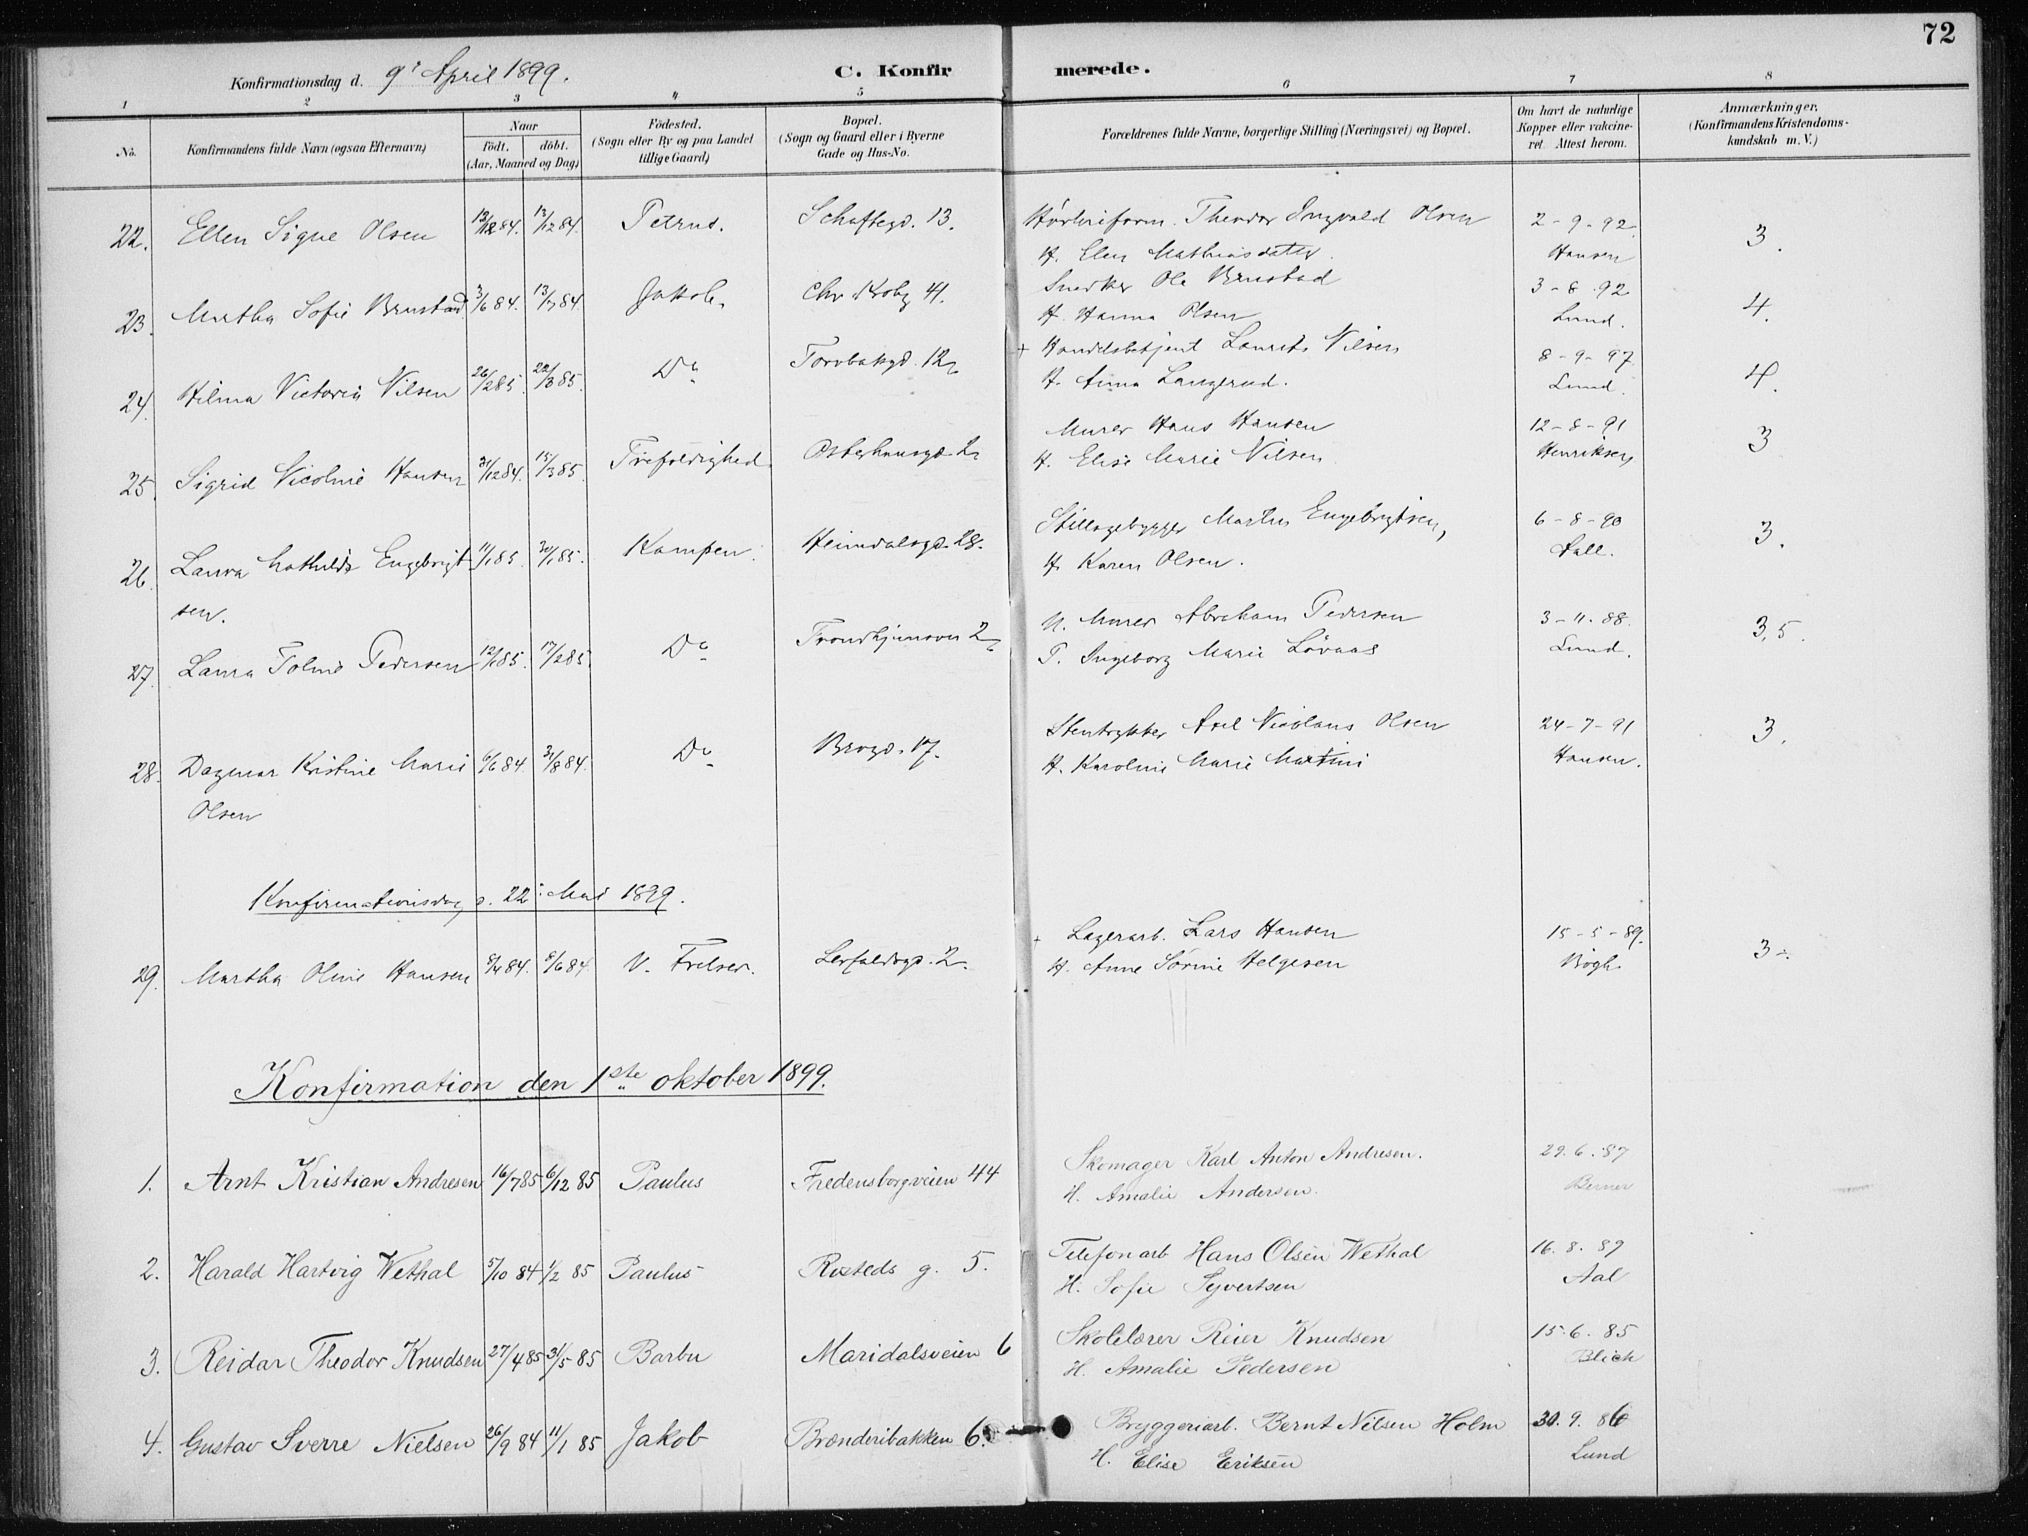 72
Konfirmationsdag d. 9de April 1899.
C. Konfirmerede.
1 2 3 4 5 6 7 8
No.
Konfirmandens fulde Navn (ogsaa Efternavn)
Naar
födt. döbt.
(Aar, Maaned og Dag)
Födested.
(Sogn eller By og paa Landet
tillige Gaard)
Bopæl.
(Sogn og Gaard eller i Byerne
Gade og Hus-No.
Forældrenes fulde Navne, borgerlige Stilling (Næringsvei) og Bopæl.
Om havt de naturlige
Kopper eller vakcine-
ret. Attest herom.
Anmærkninger.
(Konfirmandens Kristendoms-
kundskab m. V.)
22. Ellen Signe Olsen 13/12 84. Petrus. 13. Theodor Ingvald Olsen 2-9-92. 3.
H. Elen Mathiasdatter. Hansen
23. Martha Sofie Brustad 3/6 84. 13/7 84. Jakob. Chr. Krohg 41. Snedker Ole Brustad 3-8-92 4.
H. Hanna Olsen Lund.
24. Hilma Victoria Nilsen 26/2 85. 22/3 85. Do Torvbakgd. 12 + Handelsbetjent Laurits Nilsen 8-9-97 4.
H. Anna Langerud. Lund.
25. Sigrid Nicoline Hansen 31/12 84. 15/3 85. Trefoldighed Osterhausgd. 2 Murer Hans Hansen 12-8-91 3
H. Elise Marie Nilsen Henriksen
26. Laura Mathilde Engebrigt 11/1 85. 30/1 85. Kampen. Heimdalsgd. 28. Stillagebygger Martin Engebrigtsen, 6-8-90 3.
sen. H. Karen Olsen. Fall.
27. Laura Toline Pedersen 12/1 85. 17/2 85. Do Trondhjemsvei 2 U. Murer Abraham Pedersen 3-11-88. 3,5.
P. Ingeborg Marie Lövaas Lund.
28. Dagmar Kristine Marie 6/6 84. 31/8 84. Do Brogd. 17. Stentrykker Axel Nicolaus Olsen 24-7-91 3.
Olsen H. Karoline Marie Martini Hansen.
Konfirmationsdag d. 22de Mai 1899.
29. Martha Olivie Hansen 8/4 84. 8/6 84. V. Frelser. Lerfaldsgd. 2. + Lagerarb. Lars Hansen 15-5-89. 3÷.
H. Anne Sörine Helgesen Bögh
Konfirmation den 1ste oktober 1899.
1. Arnt Kristian Andresen 16/7 85 6/12 85 Paulus Fredensborgveien 44 Skomager Karl Anton Andresen. 29.6.87
H. Amalie Andersen. Berner
2. Harald Hartvig Wethal 5/10 84 1/2 85 Paulus Rosteds g. 5. Telefonarb Hans Olsen Wethal 16.8.89
H. Sofie Syvertsen Aal
3. Reidar Theodor Knudsen 27/4 85 31/5 85 Barbu Maridalsveien 6 Skolelærer Reier Knudsen 15.6.85
H. Amalie Pedersen Blich
4. Gustav Sverre Nielsen 26/9 84 11/1 85 Jakob Brænderibakken 6. Bryggeriarb. Bernt Nilsen Holm 30.9.86
H. Elise Eriksen Lund